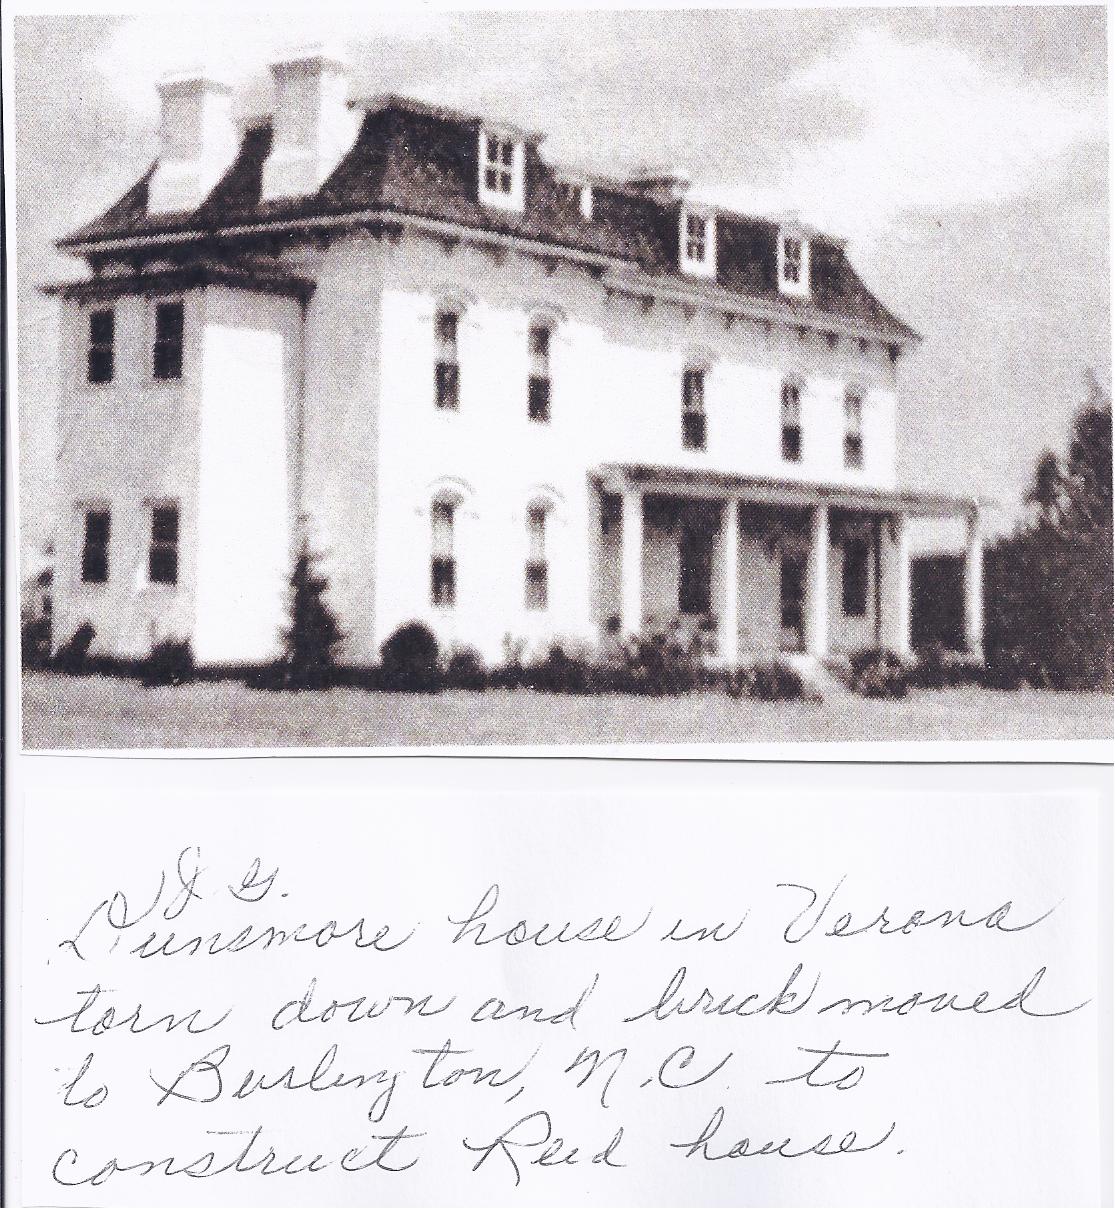 J. G.
Dunsmore house in Verona
torn down and brick moved
to Burlington, N.C. to
construct Reed house.